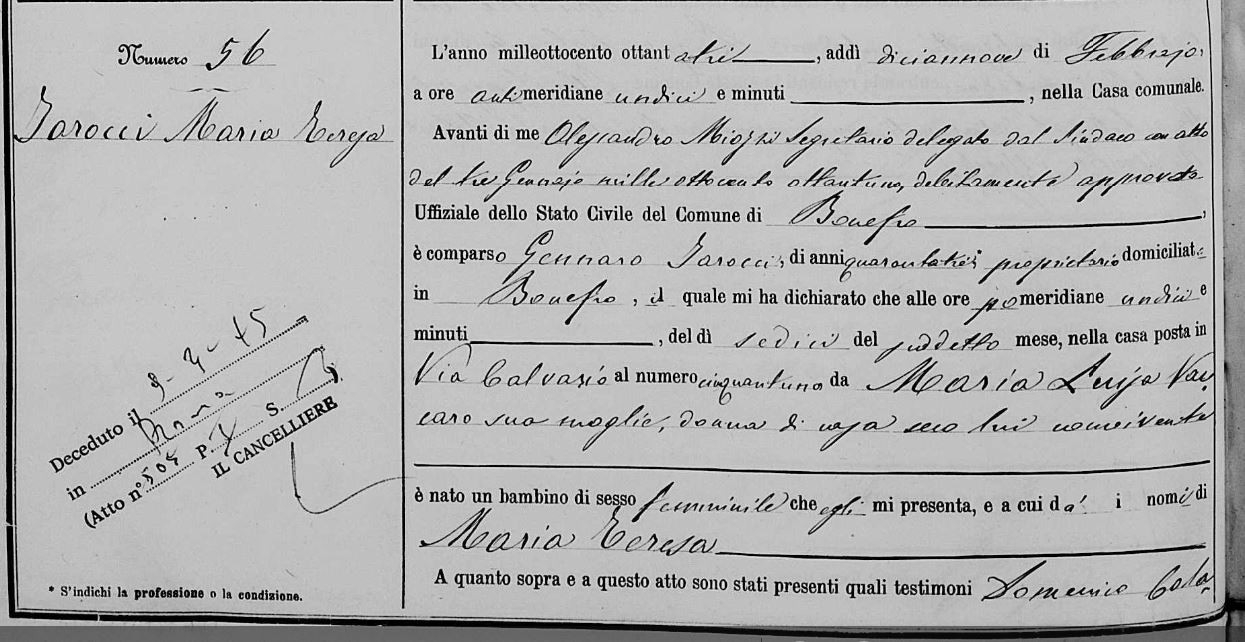 Numero 56
Iarocci Maria Teresa
Deceduto il 9-3-45
in Roma
(Atto n° 505 P. I S.
IL CANCELLIERE
* S'indichi la professione o la condizione.
L'anno milleottocento ottant atrè, addì diciannove di Febbrajo,
a ore anti meridiane undici e minuti, nella Casa comunale.
Avanti di me Alessandro Miozzi Segretario delegato dal Sindaco con atto
del tre Gennajo mille ottocento ottantuno, debitamente approvato
Uffiziale dello Stato Civile del Comune di Bonefro,
è comparso Gennaro Iarocci, di anni quarantatrè proprietario domiciliato
in Bonefro, il quale mi ha dichiarato che alle ore pomeridiane undici e
minuti, del dì sedici del suddetto mese, nella casa posta in
Via Calvario al numero cinquantuno da Maria Luisa Vac
caro sua moglie, donna di casa seco lui convivente
è nato un bambino di sesso femminile che egli mi presenta, e a cui dà i nomi di
Maria Teresa
A quanto sopra e a questo atto sono stati presenti quali testimoni Domenico